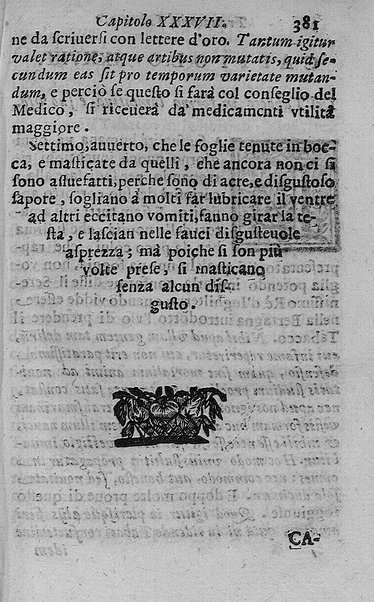 Capitolo XXXVII. 381
ne da scriversi con lettere d'oro. Tantum igitur
valet ratione, atque artibus non mutatis, quid se-
cundum eas sit pro temporum varietate mutan-
dum, e perciò se questo si farà col conseglio del
Medico, si riceuerà da medicamenti vtilità
maggiore.
Settimo, auuerto, che le foglie tenute in boc-
ca, e masticate da quelli, che ancora non ci si
sono assuefatti, perche sono di acre, e disgustoso
sapore, sogliano à molti far lubricare il ventre
ad altri eccitano vomiti, fanno girar la te-
sta, e lascian nelle fauci disgusteuole
asprezza; mà poiche si son più
volte prese, si masticano
senza alcun dis-
gusto.
CA-